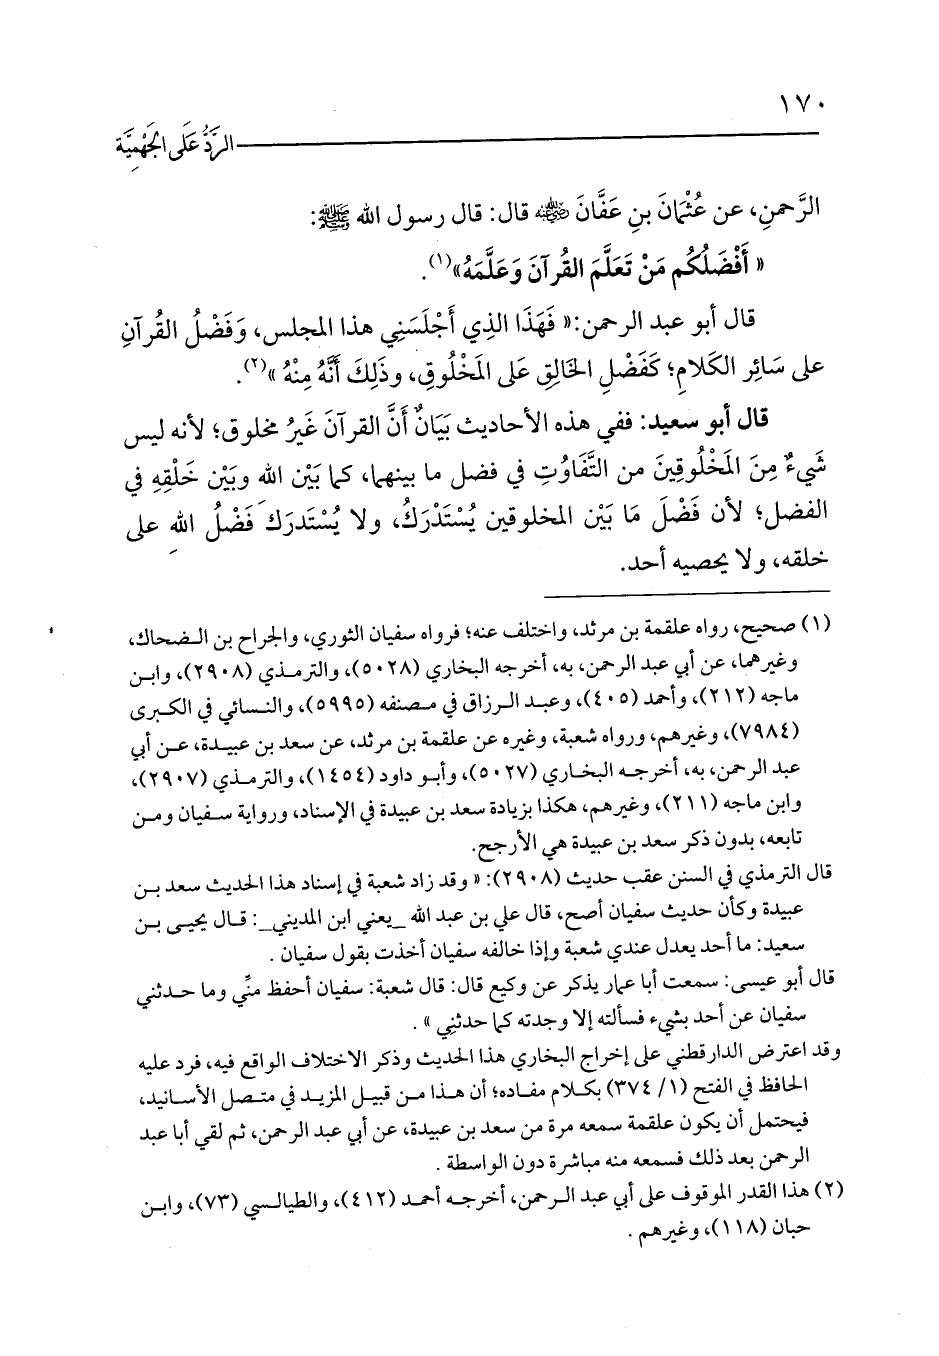 ١٧٠
الرَّدُّ عَلَى الجَهْمِيَّة
الرَّحمنِ، عن عُثْمَانَ بنِ عَفَّانَ رضي الله عنه قال: قال رسول الله ﷺ:
« أَفْضَلُكُم مَنْ تَعَلَّمَ القُرآنَ وَعَلَّمَهُ»(١).
قال أبو عبد الرحمن:« فَهَذَا الذِي أَجْلَسَنِي هذا المجلس، وَفَضْلُ القُرآنِ
على سَائِر الكَلامِ؛ كَفَضْلِ الخَالِقِ عَلى المَخْلُوقِ، وذَلِكَ أَنَّهُ مِنْهُ »(٢).
قال أبو سعيد: ففي هذه الأحاديث بَيَانٌ أَنَّ القرآنَ غَيرُ مخلوق؛ لأنه ليس
شَيءٌ مِنَ المَخْلُوقِينَ من التَّفَاوُتِ في فضل ما بينهما، كما بَيْن الله وبَيْن خَلْقِهِ في
الفضل؛ لأن فَضْلَ مَا بَيْن المخلوقين يُسْتَدْرَكُ، ولا يُسْتَدرَك فَضْلُ اللهِ على
خلقه، ولا يحصيه أحد.
(١) صحيح، رواه علقمة بن مرثد، واختلف عنه؛ فرواه سفيان الثوري، والجراح بن الضحاك،
وغيرهما، عن أبي عبد الرحمن، به، أخرجه البخاري (٥٠٢٨)، والترمذي (٢٩٠٨)، وابن
ماجه (٢١٢)، وأحمد (٤٠٥)، وعبد الرزاق في مصنفه (٥٩٩٥)، والنسائي في الكبرى
(٧٩٨٤)، وغيرهم، ورواه شعبة، وغيره عن علقمة بن مرثد، عن سعد بن عبيدة، عن أبي
عبد الرحمن، به، أخرجه البخاري (٥٠٢٧)، وأبو داود (١٤٥٤)، والترمذي (٢٩٠٧)،
وابن ماجه (٢١١)، وغيرهم، هكذا بزيادة سعد بن عبيدة في الإسناد، ورواية سفيان ومن
تابعه، بدون ذكر سعد بن عبيدة هي الأرجح.
قال الترمذي في السنن عقب حديث (٢٩٠٨): « وقد زاد شعبة في إسناد هذا الحديث سعد بن
عبيدة وكأن حديث سفيان أصح، قال علي بن عبد الله _يعني ابن المديني_: قال يحيى بن
سعيد: ما أحد يعدل عندي شعبة وإذا خالفه سفيان أخذت بقول سفيان .
قال أبو عيسى: سمعت أبا عمار يذكر عن وكيع قال: قال شعبة: سفيان أحفظ منِّي وما حدثني
سفيان عن أحد بشيء فسألته إلا وجدته كما حدثني » .
وقد اعترض الدارقطني على إخراج البخاري هذا الحديث وذكر الاختلاف الواقع فيه، فرد عليه
الحافظ في الفتح (١/ ٣٧٤) بكلام مفاده؛ أن هذا من قبيل المزيد في متصل الأسانيد،
فيحتمل أن يكون علقمة سمعه مرة من سعد بن عبيدة، عن أبي عبد الرحمن، ثم لقي أبا عبد
الرحمن بعد ذلك فسمعه منه مباشرة دون الواسطة .
(٢) هذا القدر الموقوف على أبي عبد الرحمن، أخرجه أحمد (٤١٢)، والطيالسي (٧٣)، وابن
حبان (١١٨)، وغيرهم .